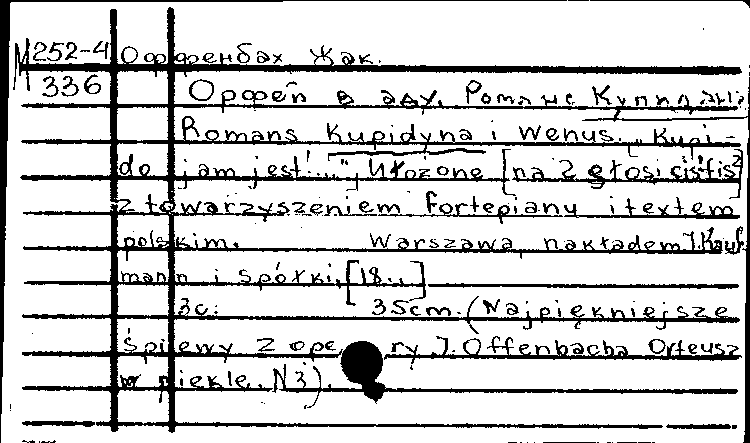 М252-4 Оффенбах, Жак.
336 Орфей в аду. Романс Купидона
Romans Kupidyna i Wenus. „Kupi-
do jam jest!...", Ułożone [na 2 głosi cis!fis²]
z towarzyszeniem fortepianu i textem
polskim. Warszawa, nakładem J. Kauf-
mann i spółki, [18..]
3с. 35cm. (Najpiękniejsze
śpiewy z opery J. Offenbacha Orfeusz
w piekle. N3).